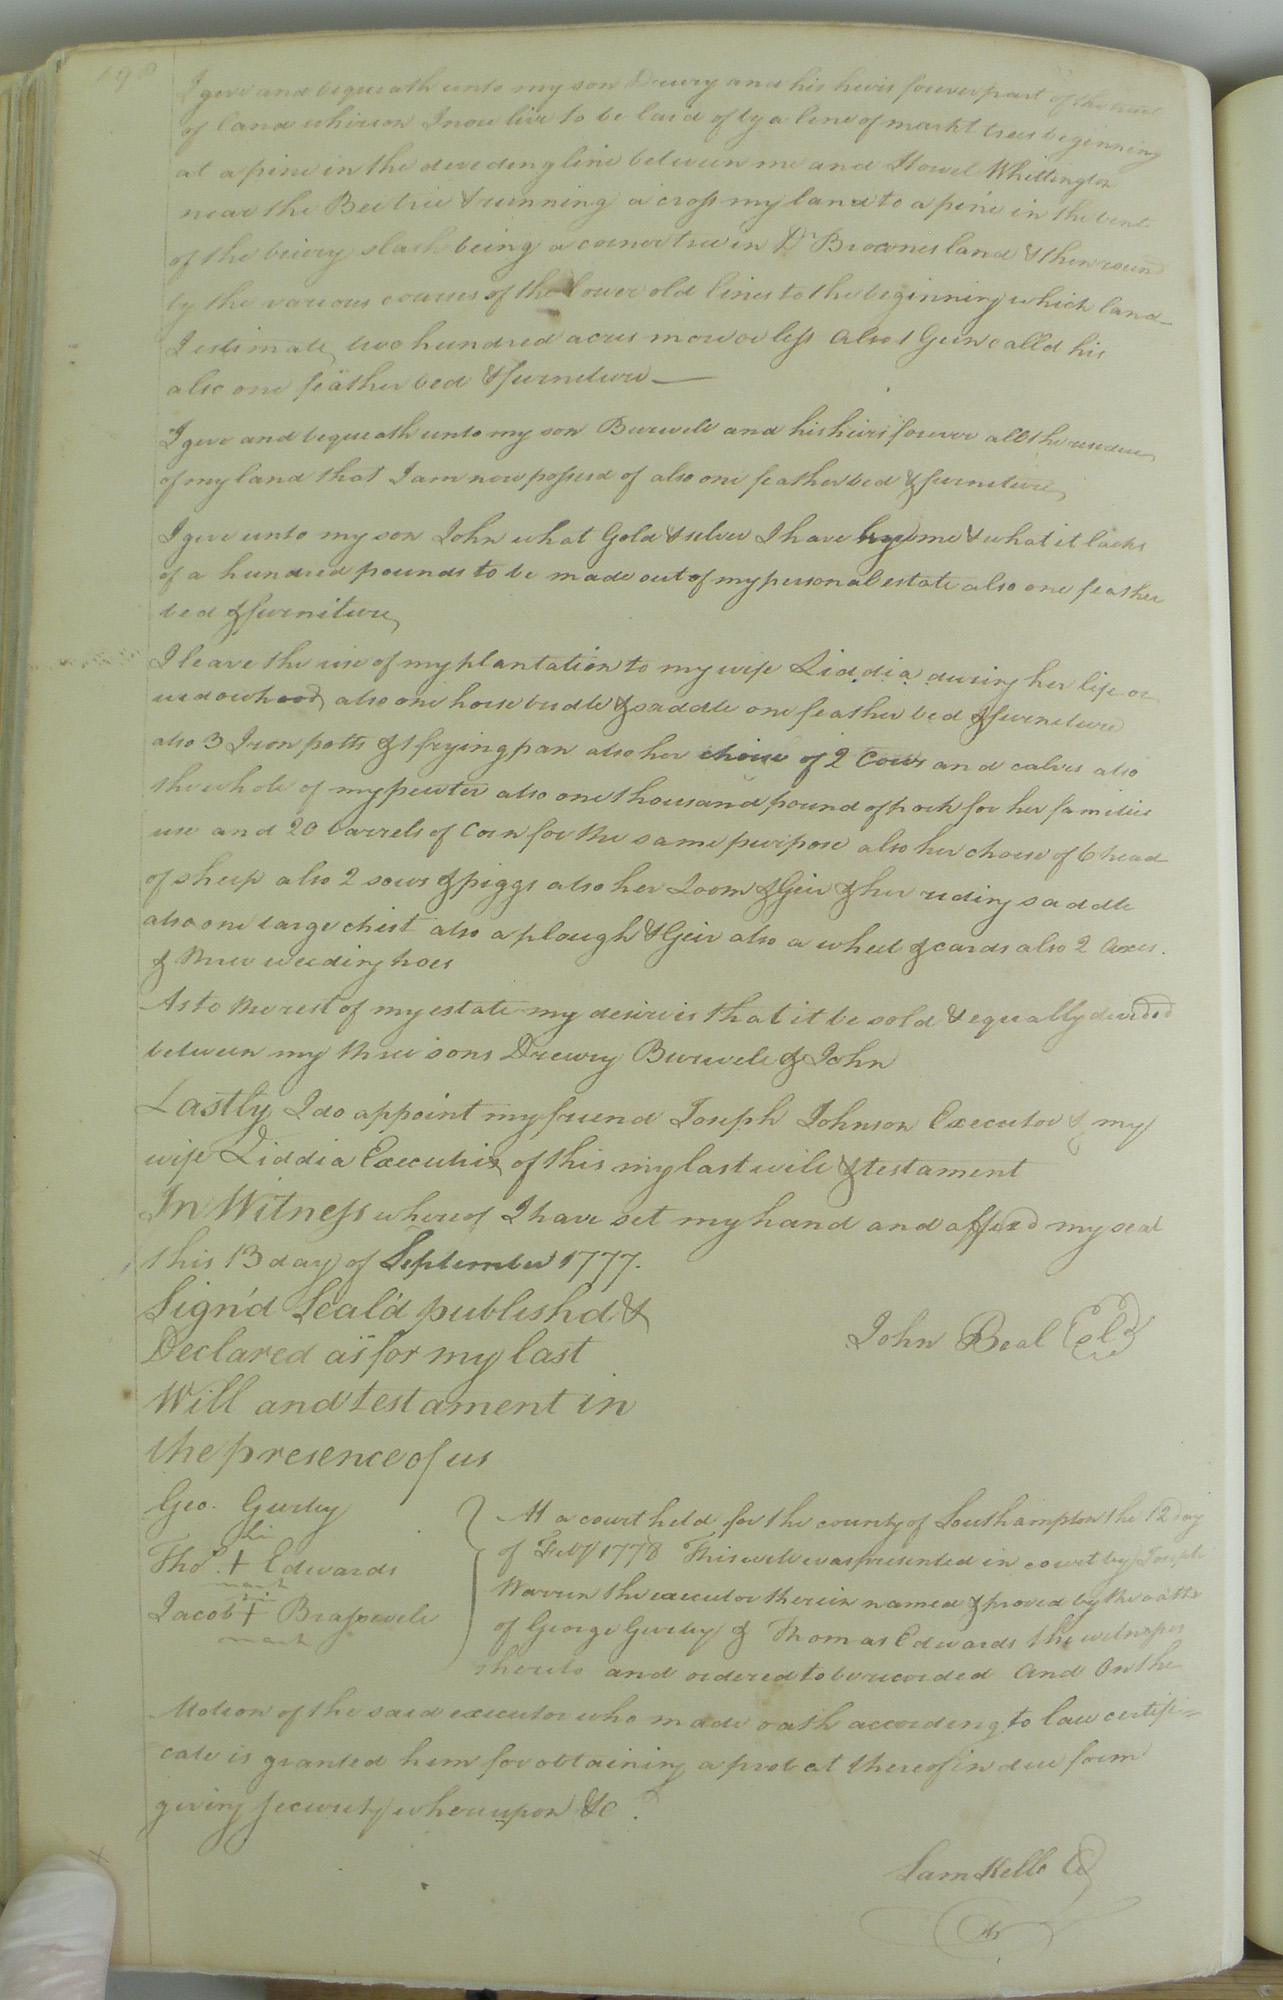 198
I give and bequeath unto my son Drury and his heirs forever part of the tract
of land whereon I now live to be laid of by a line of markt trees beginning
at a pine in the devideing line between me and Howel Whittington
near the Beetree & running a cross my land to a pine in the bent
of the briery slash being a corner tree in Dr Brownes land & then round
by the various courses of the lower old lines to the beginning which land
I estimate two hundred acres more or less also 1 Gun calld his
also one feather bed & furneture —
I give and bequeath unto my son Burwell and his heirs forever all the residue
of my land that I am now possesd of also one feather bed & furneture
I give unto my son John what Gold & silver I have by me & what it lacks
of a hundred pounds to be made out of my personal estate also one feather
bed & furniture
I leave the use of my plantation to my wife Liddia during her life or
widowhood also one horse bridle & saddle one feather bed & furneture
also 3 Iron potts & 1 frying pan also her choise of 2 Cows and calves also
the whole of my pewter also one thousand pound of pork for her families
use and 20 barrels of Corn for the same purpose also her choise of 6 head
of sheep also 2 sows & piggs also her Loom & Geir & her riding saddle
also one large chist also a plough & Geir also a wheel & cards also 2 axes.
& three weeding hoes
As to the rest of my estate my desire is that it be sold & equally devided
between my three sons Drewry Burwell & John
Lastly I do appoint my friend Joseph Johnson Executor & my
wife Liddia Executrix of this my last will & testament
In Witness whereof I have set my hand and affixd my seal
this 13 day of September 1777.
Sign'd Seal'd publishd &
Declared as for my last
Will and testament in
the presence of us
John Beal
Geo. Gurley
his
Thos. + Edwards
mark
his
Jacob + Brassewell
mark
At a court held for the county of Southampton the 12 day
of Feby 1778 This will was presented in court by Joseph
Warren the executor therein named & proved by the oaths
of George Gurley & Thomas Edwards the witnesses
thereto and ordered to be recorded And On the
Motion of the said executor who made oath according to law certifi=
cate is granted him for obtaining a probat thereof in due form
giving security whereupon &c.
Sam Kello